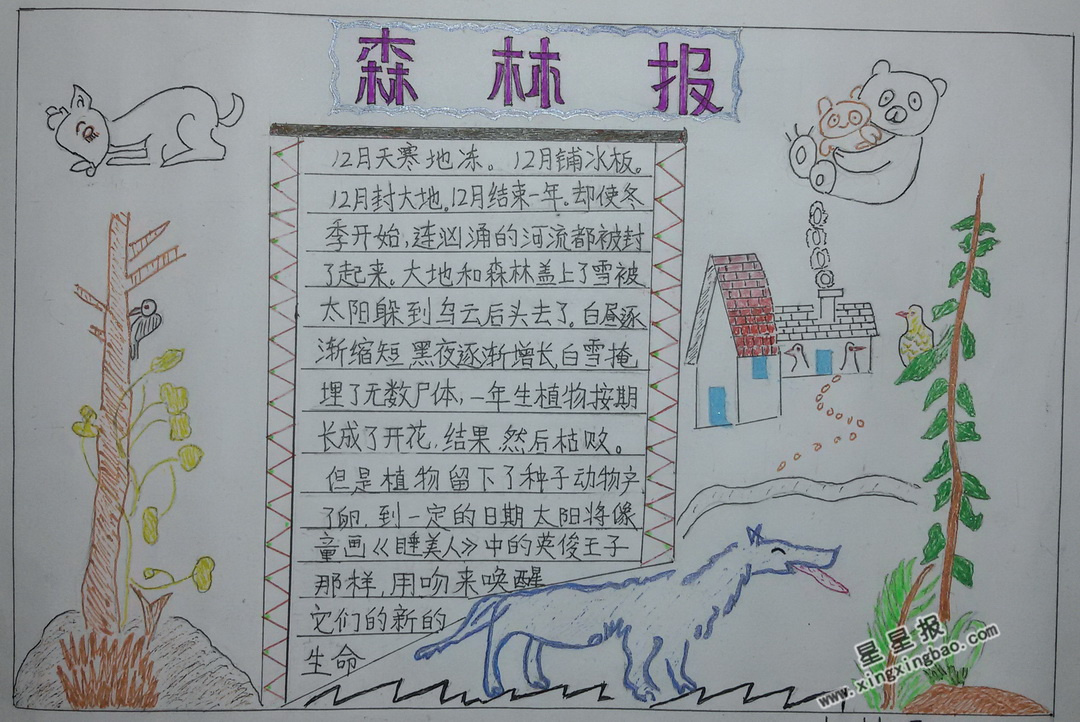 森林报
12月天寒地冻。12月铺冰板。
12月封大地。12月结束一年。却使冬
季开始,连汹涌的河流都被封
了起来。大地和森林盖上了雪被
太阳躲到乌云后头去了。白昼逐
渐缩短 黑夜逐渐增长,白雪掩
埋了无数尸体,一年生植物按期
长成了开花,结果,然后枯败。
但是植物留下了种子动物产
了卵,到一定的日期太阳将像
童画《睡美人》中的英俊王子
那样,用吻来唤醒
它们的新的
生命
星星报
www.xingxingbao.com